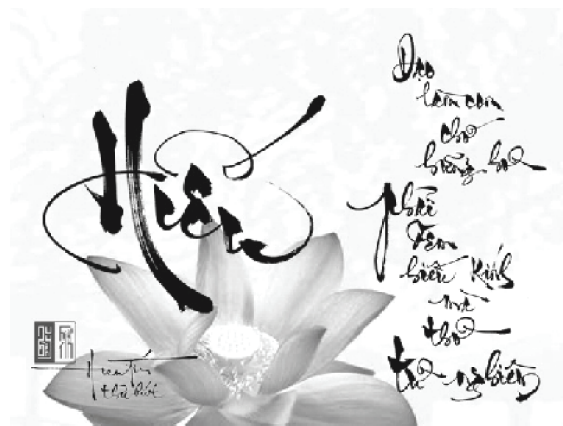 Hiếu
Đạo
làm con
chớ
hững hờ
phải
đem
hiếu kính
mà
thờ
từ nghiêm
thư bút